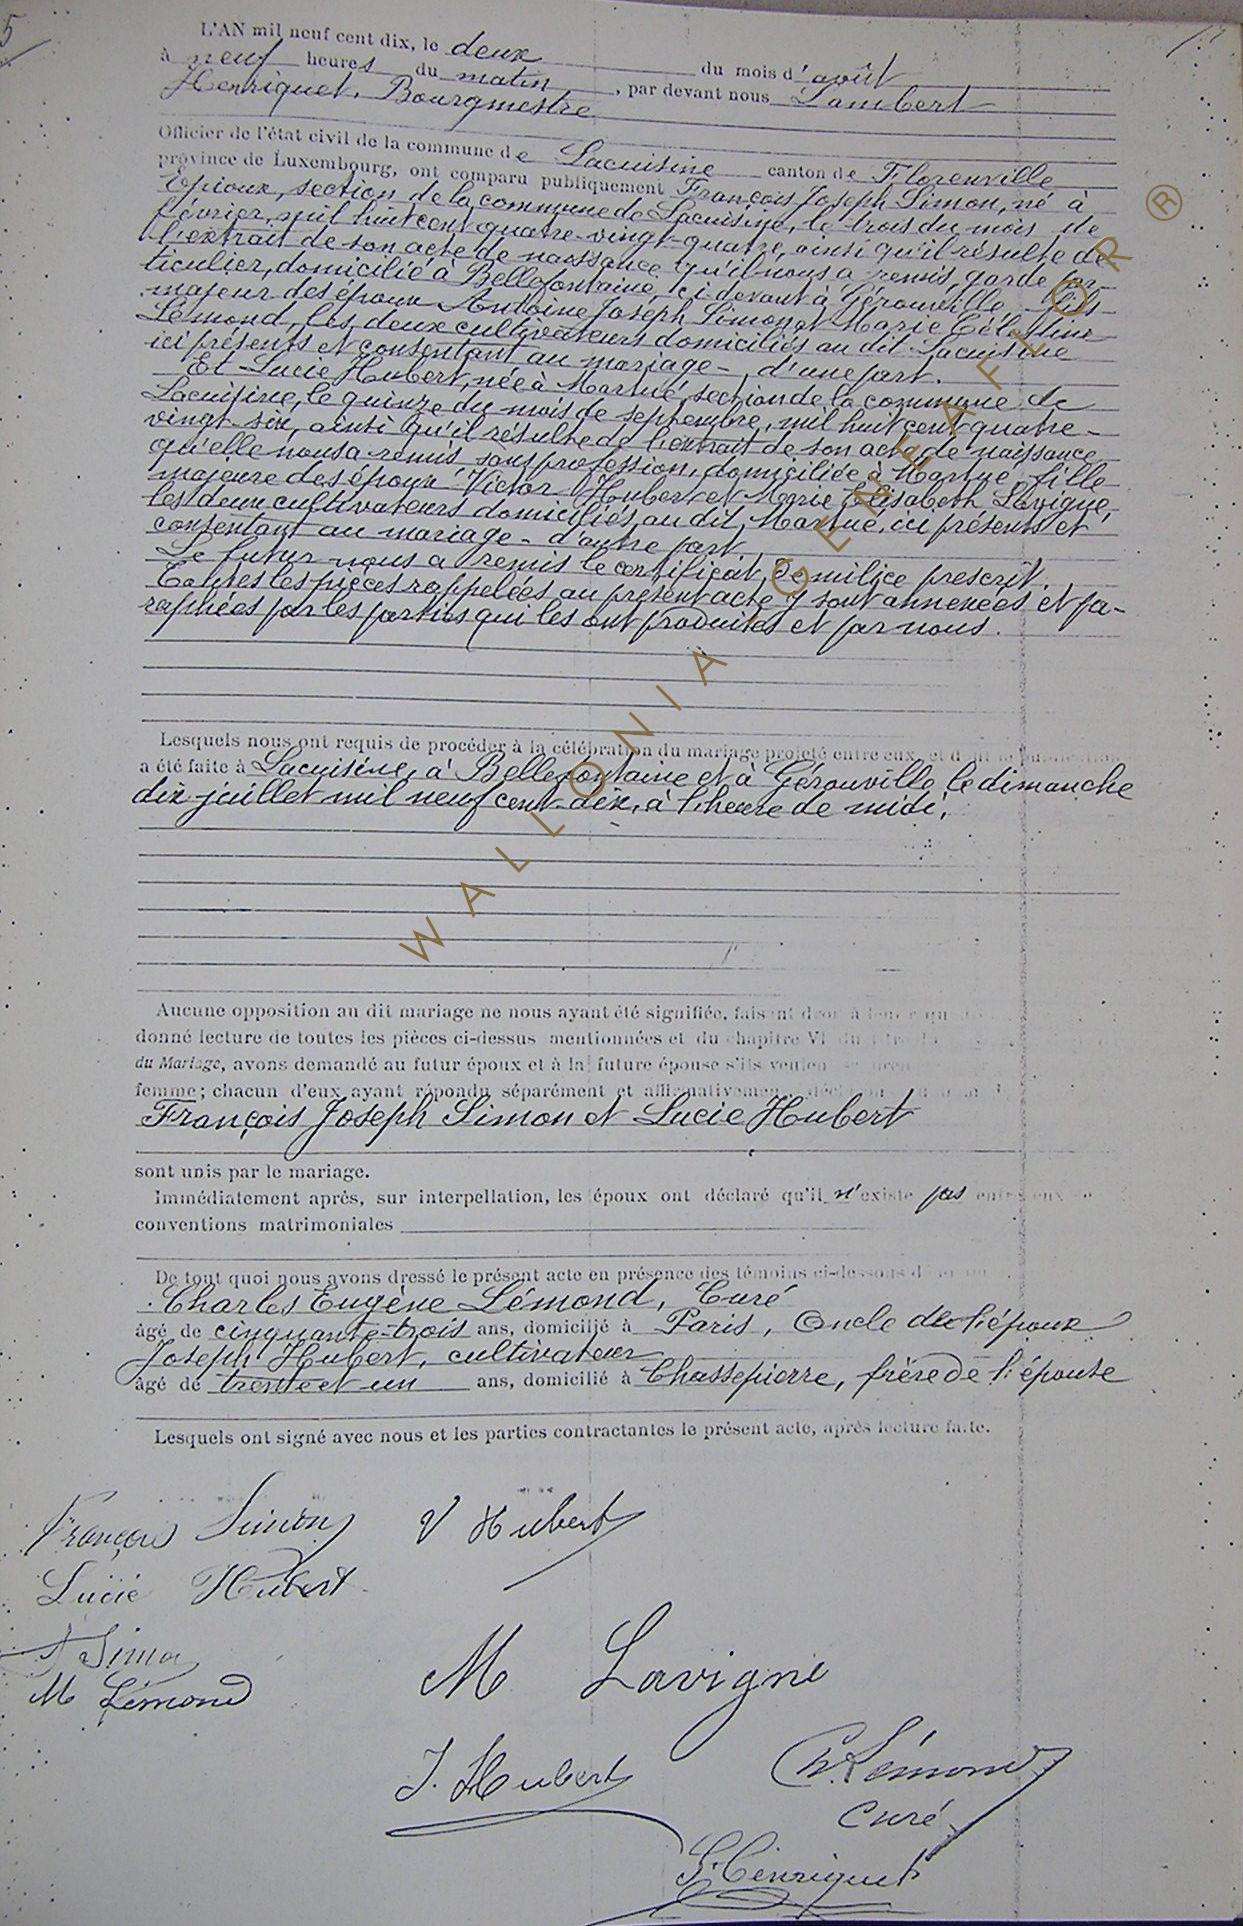 5
L'AN mil neuf cent dix, le deux du mois d'août
à neuf heures du matin, par devant nous Lambert
Henriquet, Bourgmestre
Officier de l'état civil de la commune de Lacuisine canton de Florenville
province de Luxembourg, ont comparu publiquement François Joseph Simon, né à
Epioux, section de la commune de Lacuisine, le trois du mois de
février, mil huit cent quatre-vingt-quatre, ainsi qu'il résulte de
l'extrait de son acte de naissance qu'il nous a remis, garde par-
ticulier, domicilié à Bellefontaine, ci devant à Gérouville fils
majeur des époux Antoine Joseph Simon et Marie Célestine
Lémond, les deux cultivateurs domiciliés au dit Lacuisine
ici présents et consentant au mariage -, d'une part.
Et Lucie Hubert, née à Martué, section de la commune de
Lacuisine, le quinze du mois de septembre, mil huit cent quatre-
vingt six, ainsi qu'il résulte de l'extrait de son acte de naissance
qu'elle nous a remis, sans profession, domiciliée à Martué, fille
majeure des époux Victor Hubert et Marie Elisabeth Lavigne,
les deux cultivateurs domiciliés au dit Martué, ici présents et
consentant au mariage - d'autre part
Le futur nous a remis le certificat de milice prescrit.
Toutes les pièces rappelées au présent acte y sont annexées et pa-
raphées par les parties qui les ont produites et par nous.
Lesquels nous ont requis de procéder à la célébration du mariage projeté entre eux, et dont la publication
a été faite à Lacuisine, à Bellefontaine et à Gérouville le dimanche
dix juillet mil neuf cent dix, à l'heure de midi.
Aucune opposition au dit mariage ne nous ayant été signifiée, faisant droit à leur
donné lecture de toutes les pièces ci-dessus mentionnées et du chapitre VI du
du Mariage, avons demandé au futur époux et à la future épouse s'ils veulent
femme ; chacun d'eux ayant répondu séparément et affirmativement,
François Joseph Simon et Lucie Hubert
sont unis par le mariage.
Immédiatement après, sur interpellation, les époux ont déclaré qu'il n'existe pas entre eux
conventions matrimoniales
De tout quoi nous avons dressé le présent acte en présence des témoins ci-dessous
Charles Eugène Lémond, Curé
âgé de cinquante-trois ans, domicilié à Paris, Oncle de l'époux
Joseph Hubert, cultivateur
âgé de trente et un ans, domicilié à Chassepierre, frère de l'épouse
Lesquels ont signé avec nous et les parties contractantes le présent acte, après lecture faite.
François Simon V Hubert
Lucie Hubert
Simon
M Lémond
M Lavigne
J. Hubert
Ch. Lémond
curé
L. Henriquet
WALLONIA GENEAFLOR ®